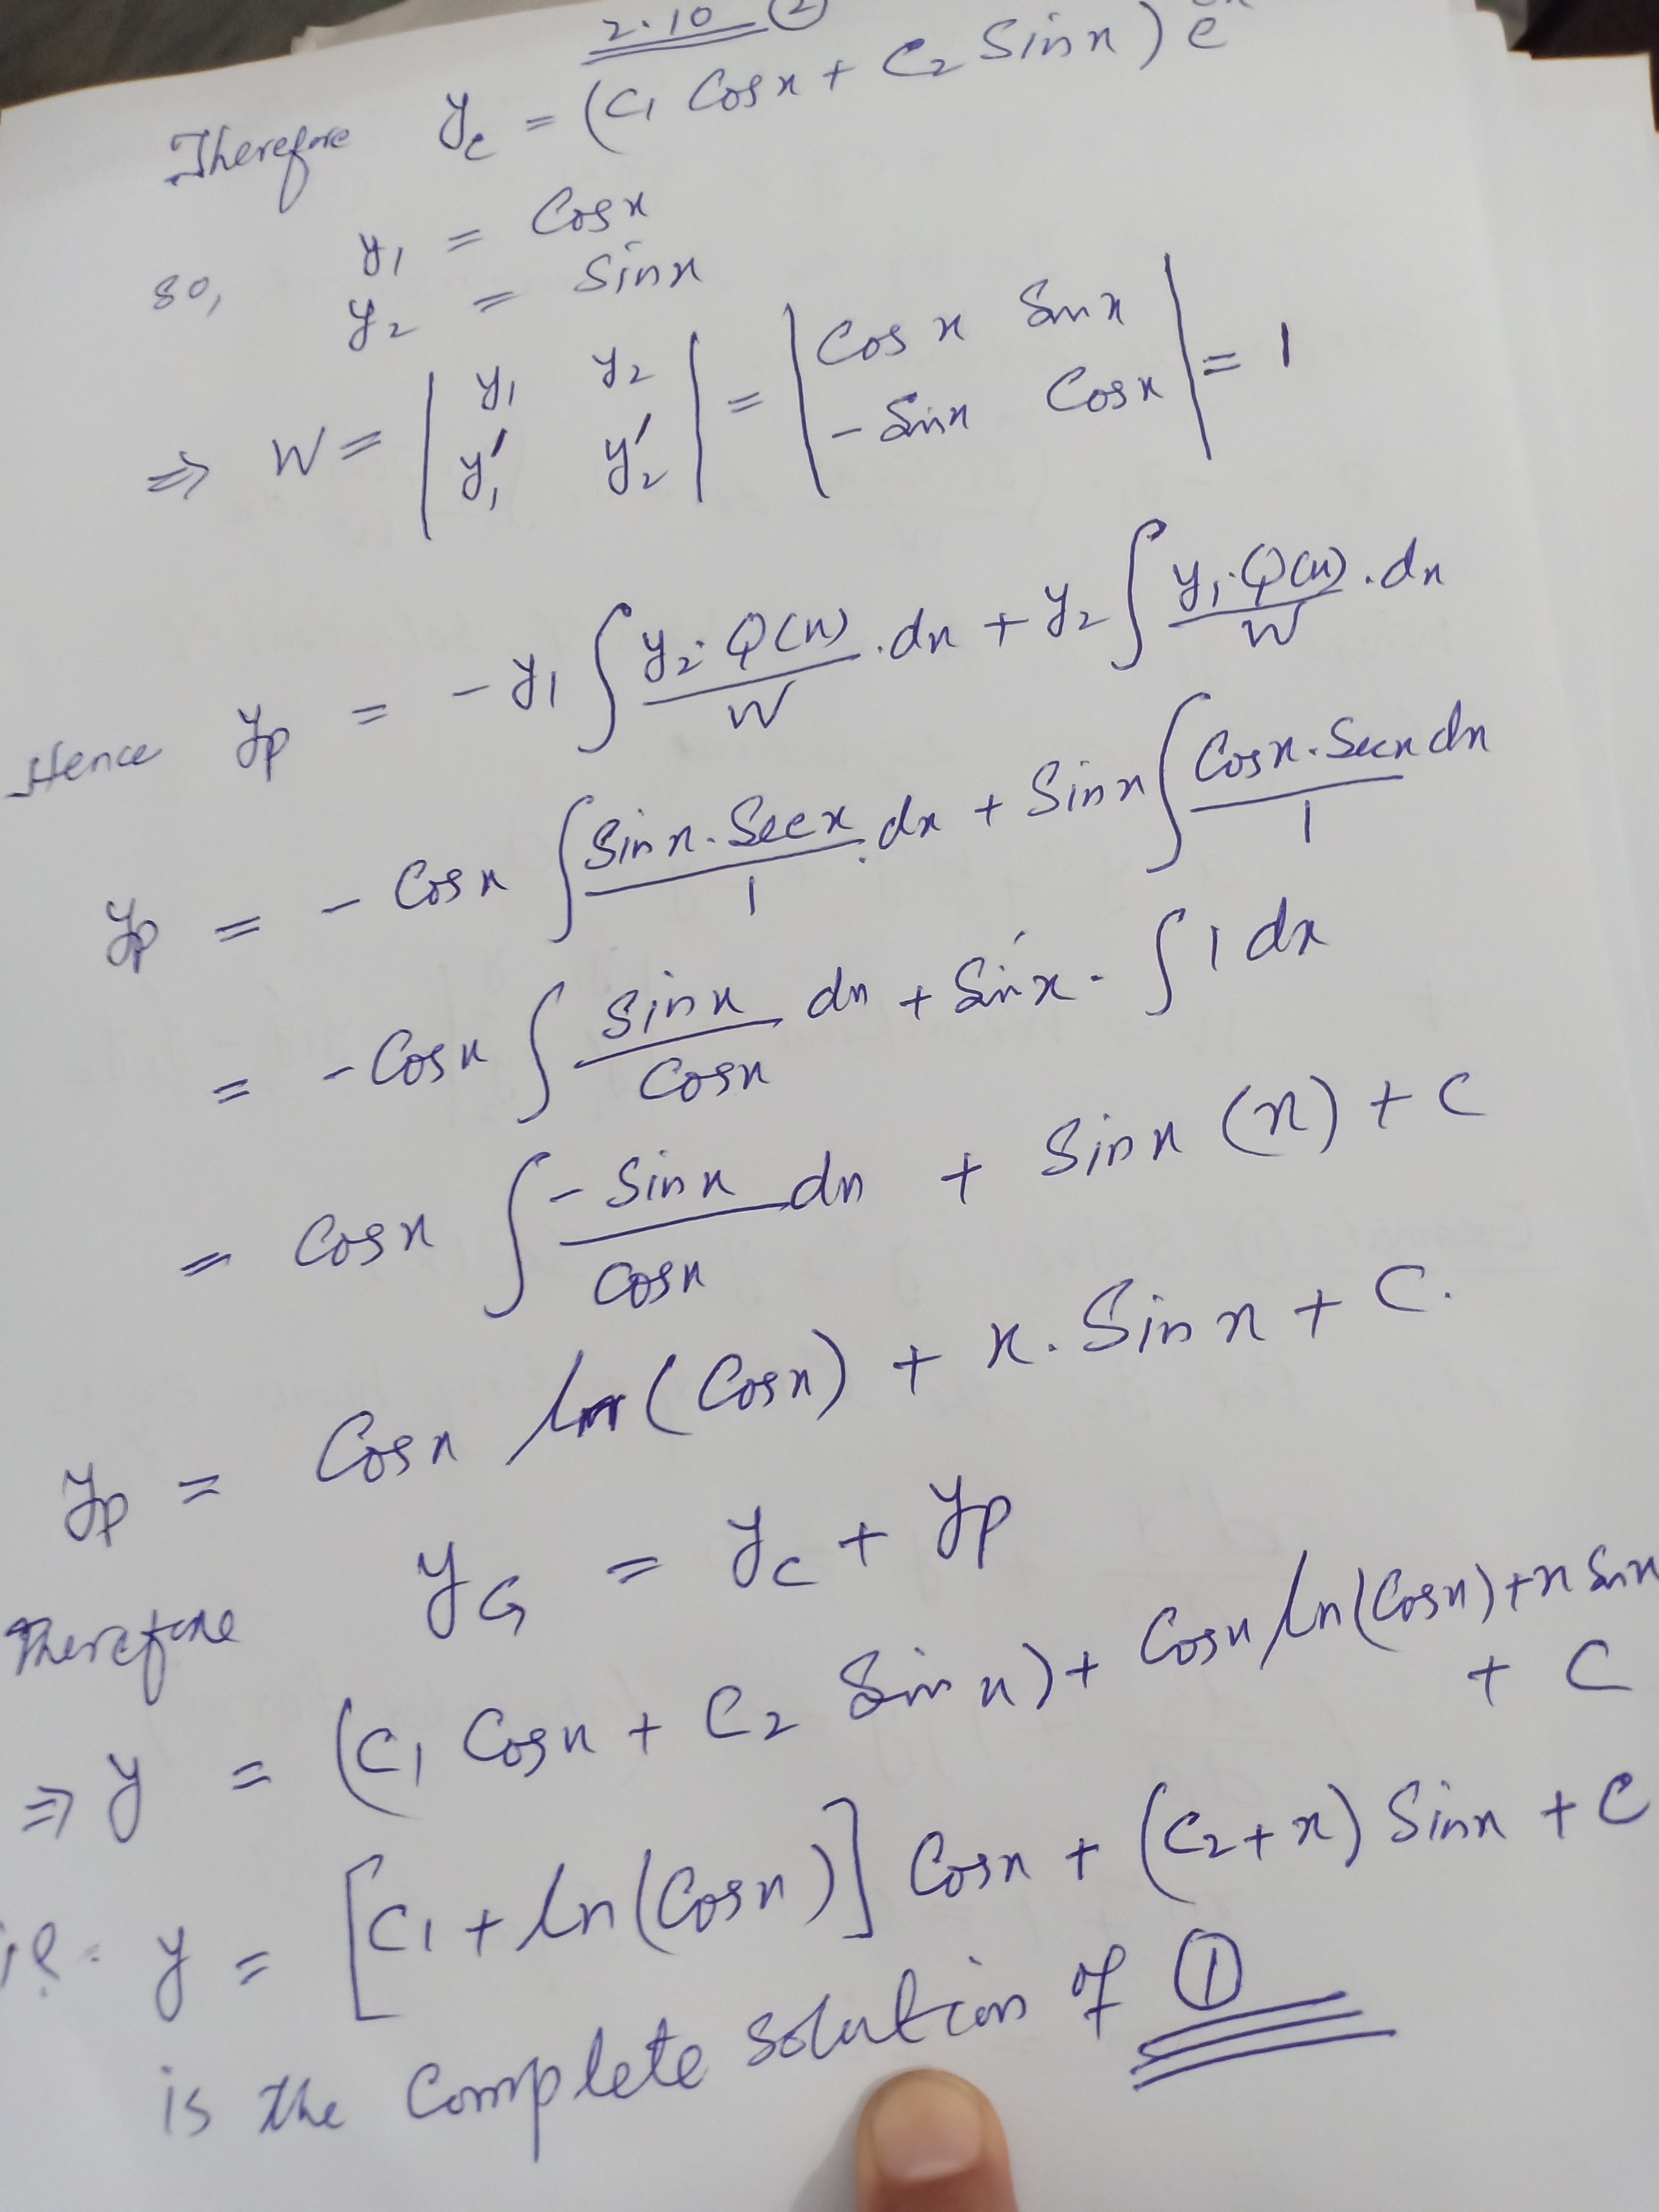 2.10 ②
Therefore y_c = (C₁ Cosx + C₂ Sinx) e
so, y₁ = Cosx
y₂ = Sinx
⇒ W = | y₁ y₂ | = | Cosx Sinx | = 1
| y₁' y₂' | | -Sinx Cosx |
Hence y_p = -y₁ ∫ y₂·Q(x)/W .dx + y₂ ∫ y₁·Q(x)/W .dx
y_p = - Cosx ∫ Sinx·Secx/1 .dx + Sinx ∫ Cosx·Secx dx/1
= - Cosx ∫ Sinx/Cosx dx + Sinx · ∫ 1 dx
= Cosx ∫ -Sinx/Cosx dx + Sinx (x) + C
y_p = Cosx ln(Cosx) + x. Sinx + C.
Therefore y_G = y_c + y_p
⇒ y = (C₁ Cosx + C₂ Sinx) + Cosx ln(Cosx) + x Sinx
+ C
i.e. y = [C₁ + ln(Cosx)] Cosx + (C₂+x) Sinx + C
is the Complete solution of ①